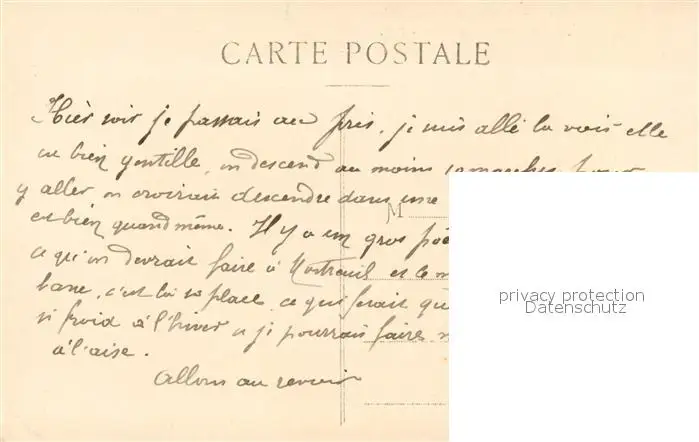 CARTE POSTALE
Hier soir je passais au près, je suis allé la voir elle
est bien gentille, on descend au moins 10 marches pour
y aller on croirait descendre dans une
M
est bien quand même. Il y a un gros
ce qu'on devrait faire à Montreuil et le
banc, c'est là sa place, ce qui ferait
si froid à l'hiver je pourrais faire
à l'aise.
Allons au revoir
privacy protection
Datenschutz